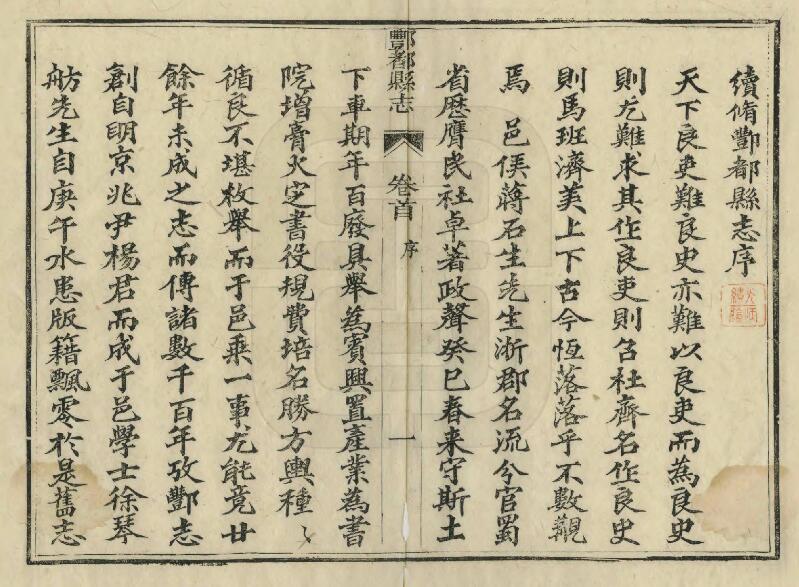 續脩酆都縣志序
天下良吏難良史亦難以良吏而為良史
則尤難求其作良吏則召杜齊名作良史
則馬班濟美上下古今恆落落乎不數覯
焉 邑侯蔣石生先生浙郡名流分官蜀
省歷膺民社卓著政聲癸巳春来守斯土
酆都縣志
卷首
序
一
下車期年百廢具舉為賓興置產業為書
院增膏火定書役規費培名勝方輿種ミ
循良不堪枚舉而于邑乘一事尤能竟廿
餘年未成之志而傳諸數千百年攷酆志
創自明京兆尹楊君而成于邑學士徐琴
舫先生自庚午水患版籍飄零於是舊志